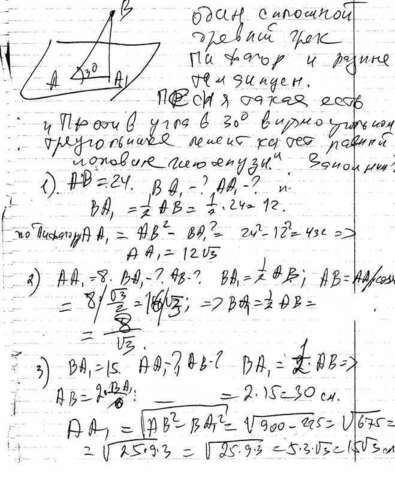 B
один сплошной
древний грек
Пифагор и
A 30 A₁
Песня такая есть
"Против угла в 30° в прямоугольном
треугольнике лежит катет равный
половине гипотенузы". Запомни?
1). AB=24. BA₁-? AA₁-?
BA₁ = 1/2 AB = 1/2 · 24 = 12.
по Пифагору AA₁ = AB² - BA₁² = 24² - 12² = 432 =>
AA₁ = 12√3
2) AA₁=8. BA₁-? AB-? BA₁ = 1/2 AB; AB = AA₁/cos
= 8 / √3/2 = 16/√3; => BA₁ = 1/2 AB =
= 8/√3.
3) BA₁=15. AA₁-? AB-? BA₁ = 1/2 AB =>
AB = 2·BA₁ = 2·15 = 30 см.
AA₁ = √AB² - BA₁² = √900 - 225 = √675 =
= √25·9·3 = √25·9·3 = 5·3·√3 = 15√3 см